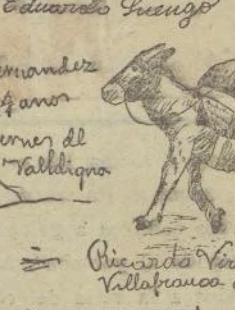 Eduardo Luengo
ernandez
años
ernes dl
Valldigna
Ricardo Vi
Villafranca